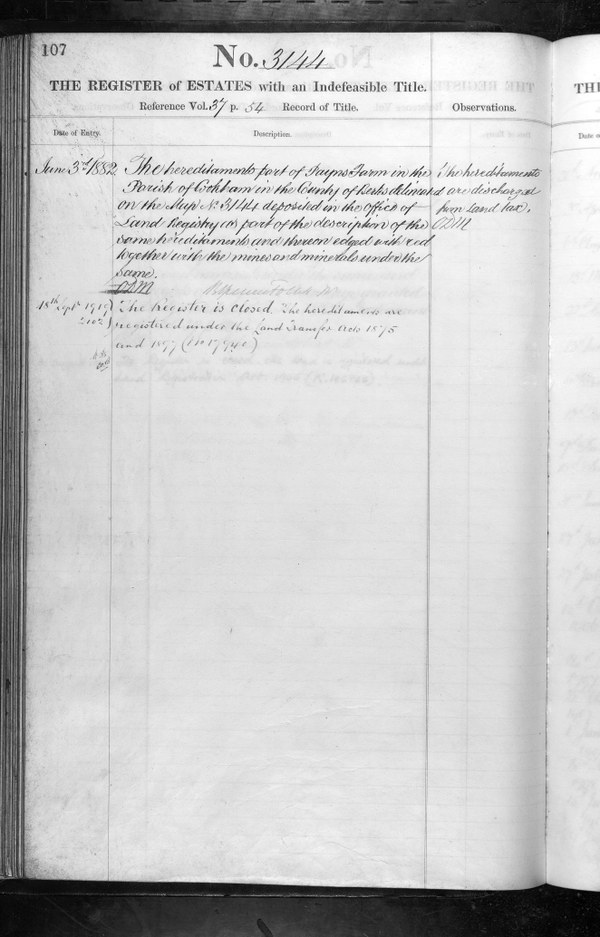 107
No. 3144
THE REGISTER of ESTATES with an Indefeasible Title.
Reference Vol. 37 p. 54 Record of Title.
Observations.
Date of Entry.
Description.
June 3rd 1882
The hereditaments part of Payns Farm in the
Parish of Cookham in the County of Berks delineated
on the Map No 3144 deposited in the Office of
Land Registry as part of the description of the
same hereditaments and thereon edged with red
together with the mines and minerals under the
same.
The hereditaments
are discharged
from Land Tax.
18th Sept 1919
The Register is closed. The hereditaments are
registered under the Land Transfer Acts 1875
and 1897
THE
Date o